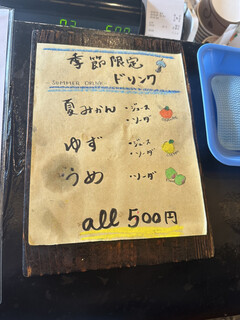 季節限定
SUMMER DRINK ドリンク
夏みかん ・ジュース
・ソーダ
ゆず ・ジュース
・ソーダ
うめ ・ソーダ
all 500円